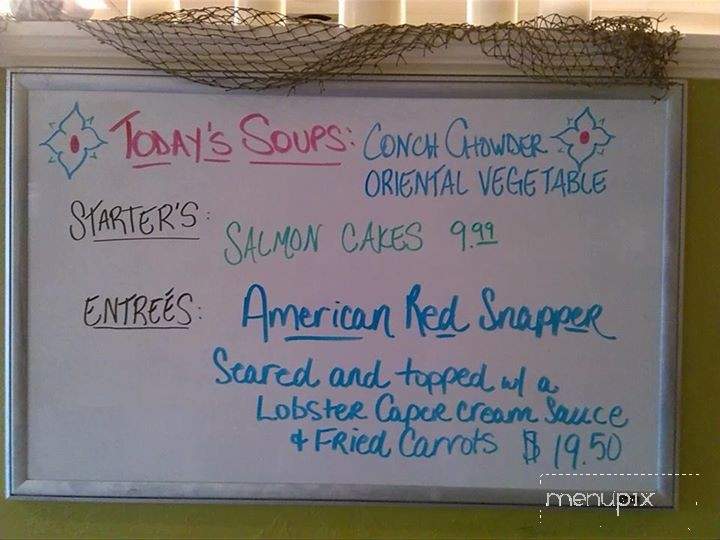 TODAY'S SOUPS: CONCH CHOWDER
ORIENTAL VEGETABLE
STARTER'S: SALMON CAKES 9.99
ENTREÉS: American Red Snapper
Seared and topped w/ a
LOBSTER Caper cream Sauce
& FRied Carrots $ 19.50
menupix